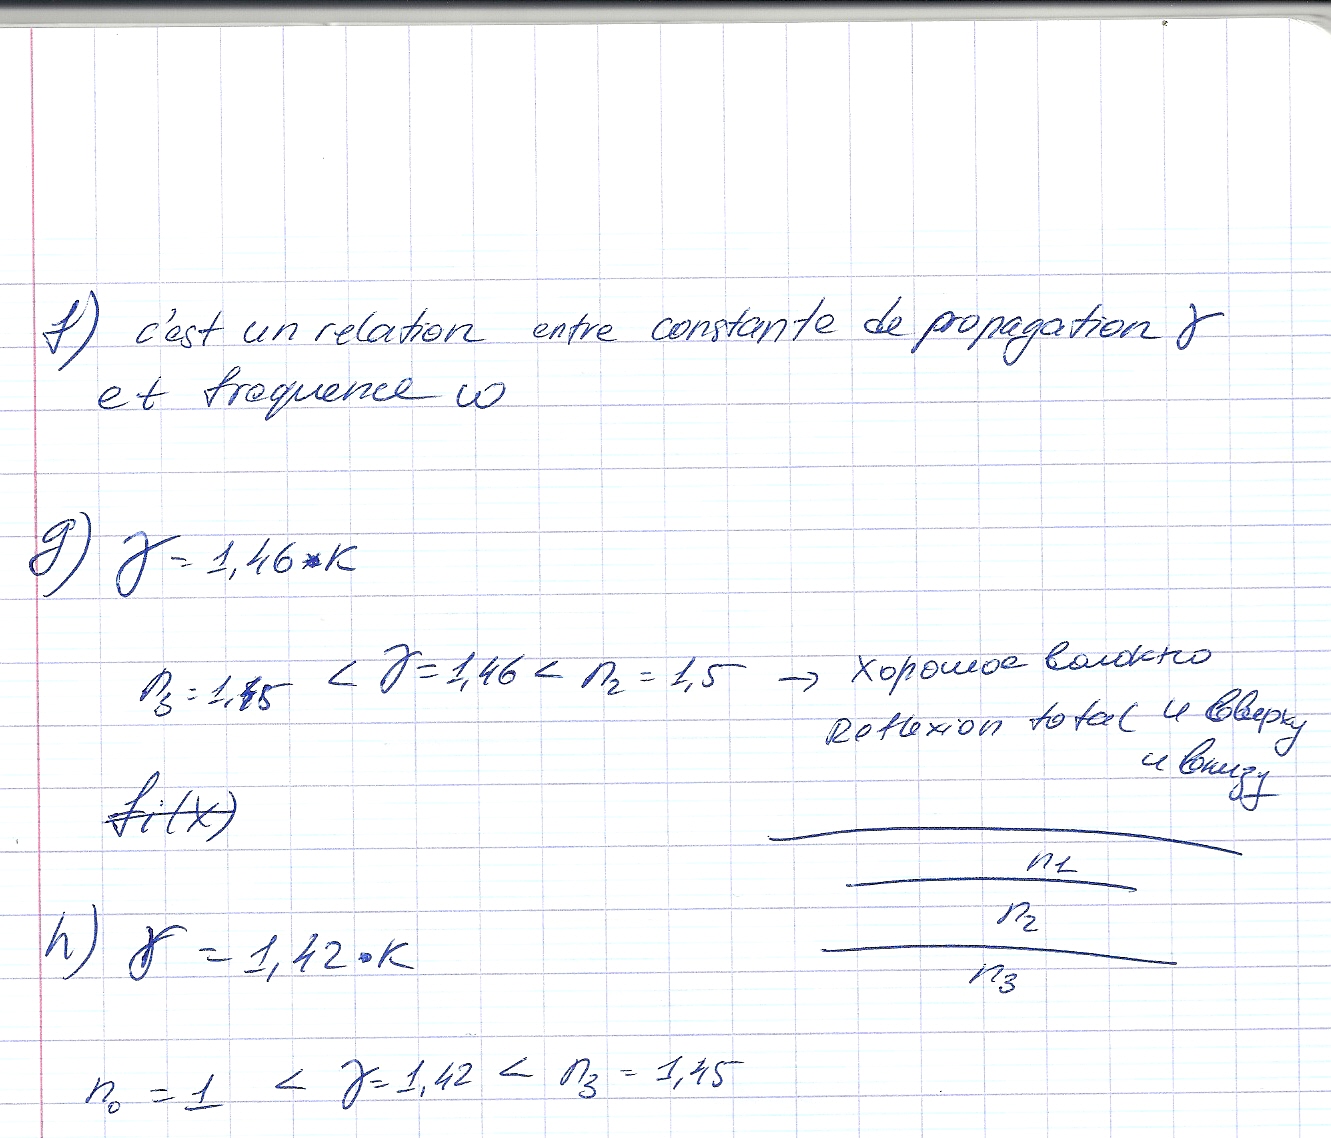 f) c'est un relation entre constante de propagation γ
et frequence ω
g) γ = 1,46 • K
n₃ = 1,45 < γ = 1,46 < n₂ = 1,5 → хорошое волокно
Reflexion total и вверху
и внизу
fi(x)
n1
n2
n3
h) γ = 1,42 • K
n₀ = 1 < γ = 1,42 < n₃ = 1,45